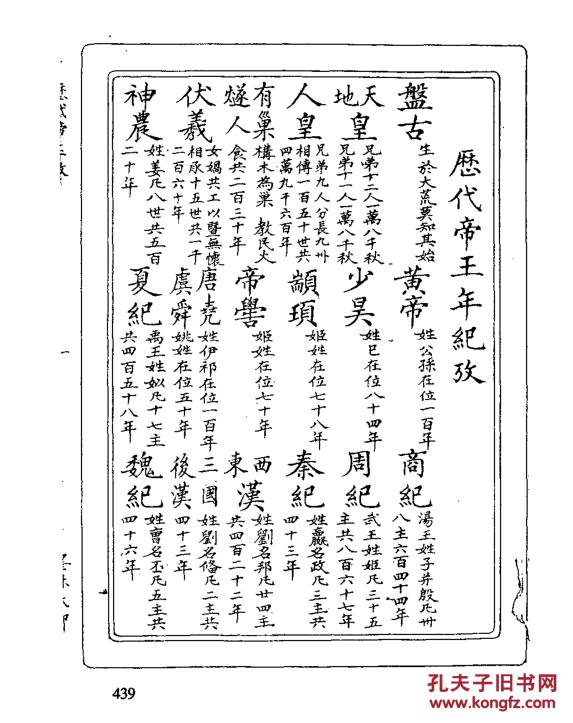 歷代帝王年紀攷
盤古
生於大荒莫知其始
天地皇
兄弟十二人一萬八千秋
兄弟十一人一萬八千秋
人皇
兄弟九人分長九州
相傳一百五十世共
四萬九千六百年
有巢
燧人
構木為巢 教民火
食共二百三十年
伏羲
女媧共工以暨無懷
相承十五世共一千
二百六十年
神農
姓姜凡八世共五百
二十年
黃帝
姓公孫在位一百年
少昊
姓巳在位八十四年
顓頊
姬姓在位七十八年
帝嚳
姬姓在位七十年
唐堯
虞舜
姓伊祁在位一百年
姚姓在位五十年
夏紀
禹王姓姒凡十七主
共四百五十八年
商紀
湯王姓子并殷凡卅
八主六百四十四年
周紀
武王姓姬凡三十五
主共八百六十七年
秦紀
姓嬴名政凡三主共
四十三年
西東漢
姓劉名邦凡廿四主
共四百二十二年
三國
後漢
姓劉名俻凡二主共
四十三年
魏紀
姓曹名丕凡五主共
四十六年
439
孔夫子旧书网